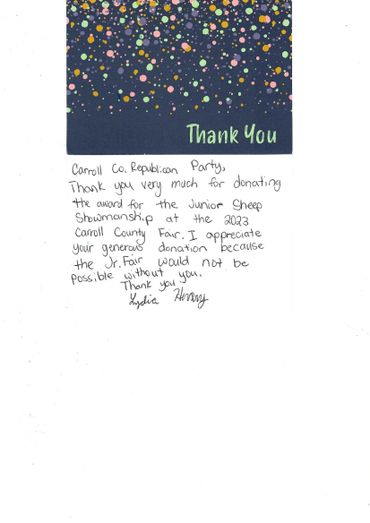 Thank You
Carroll Co. Republican Party,
Thank you very much for donating
the award for the Junior Sheep
Showmanship at the 2023
Carroll County Fair. I appreciate
your generous donation because
the Jr. Fair would not be
possible without you.
Thank you
Lydia